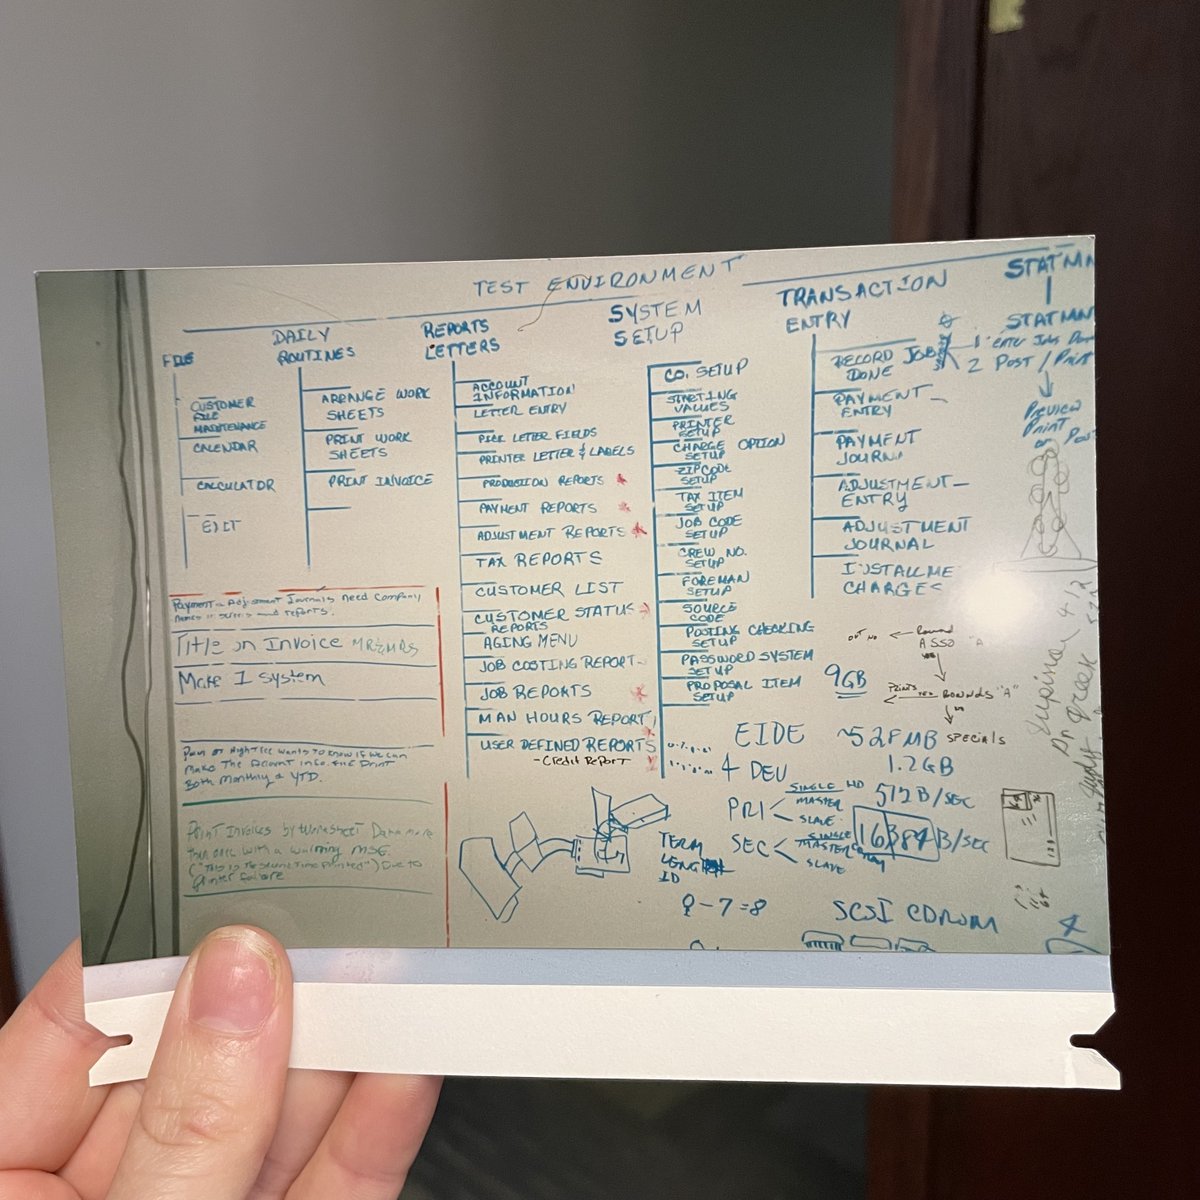 TEST ENVIRONMENT
FILE
CUSTOMER
FILE
MAINTENANCE
CALENDAR
CALCULATOR
EXIT
DAILY
ROUTINES
ARRANGE WORK
SHEETS
PRINT WORK
SHEETS
PRINT INVOICE
REPORTS
LETTERS
ACCOUNT
INFORMATION
LETTER ENTRY
PICK LETTER FIELDS
PRINTER LETTER & LABELS
PRODUCTION REPORTS
PAYMENT REPORTS
ADJUSTMENT REPORTS
TAX REPORTS
CUSTOMER LIST
CUSTOMER STATUS
REPORTS
AGING MENU
JOB COSTING REPORT
JOB REPORTS
MAN HOURS REPORT
USER DEFINED REPORTS
- Credit Report
SYSTEM
SETUP
CO. SETUP
STARTING
VALUES
PRINTER
SETUP
CHARGE OPTION
SETUP
ZIPCODE
SETUP
TAX ITEM
SETUP
JOB CODE
SETUP
CREW NO.
SETUP
FOREMAN
SETUP
SOURCE
CODE
POSTING CHECKING
SETUP
PASSWORD SYSTEM
SETUP
PROPOSAL ITEM
SETUP
TRANSACTION
ENTRY
RECORD JOB
DONE
PAYMENT
ENTRY
PAYMENT
JOURN
ADJUSTMENT
ENTRY
ADJUSTMENT
JOURNAL
INSTALLME
CHARGES
STATMN
STATMN
1 enter Jobs Don
2 Post / Print
Preview
Print
or Post
Payment & Adjustment Journals need Company
names in screens and reports.
Title on Invoice MR&MRS
Make 1 System
wants to know if we can
Make The Account info. and Print
Both Monthly & YTD.
Print Invoices by Worksheet Date more
than once with a warning MSG.
("This is The Second Time Printed") Due to
Printer failure
OUT NO
Round
"A"
9GB
PRINTS
BOUNDS "A"
SPECIALS
EIDE
~528MB
1.2GB
4 DEV
PRI
SINGLE HD
MASTER
SLAVE
512B/SEC
SEC
SINGLE
MASTER
SLAVE
16384B/SEC
TERM
LONG
ID
0 - 7 = 8
SCSI CDROM